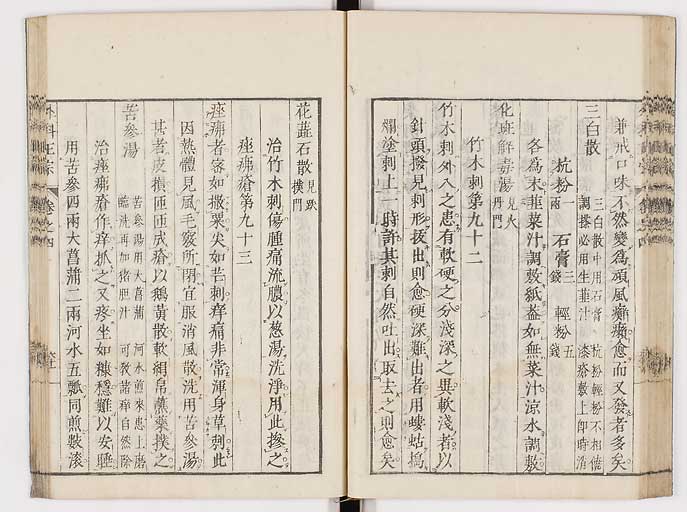 兼戒口味不然變為頑風癬癩愈而又發者多矣
三白散
三白散中用石膏 杭粉輕粉不相饒
調搽必用生韮汁 漆瘡敷上卽時消
杭粉一兩 石膏三錢 輕粉五錢
各為末韮菜汁調敷紙蓋如無菜汁涼水調敷
化斑解毒湯 見火丹門
竹木刺第九十二
竹木刺外入之患有軟硬之分淺深之異軟淺者以
針頭撥見刺形拔出則愈硬深難出者用螻蛄搗
爛塗刺上一時許其刺自然吐出取去之則愈矣
花蕊石散 見跌撲門
治竹木刺傷腫痛流膿以葱湯洗淨用此摻之
痤疿瘡第九十三
痤疿者密如撒粟尖如芒刺痒痛非常渾身草刺此
因熱體見風毛竅所閉宜服消風散洗用苦參湯
甚者皮損匝匝成瘡以鵝黃散軟絹帛蘸藥撲之
苦參湯
苦參湯用大菖蒲 河水煎來患上磨
臨洗再加猪胆汁 可教諸痒自然除
治痤疿瘡作痒抓之又疼坐如糠穩難以安睡
用苦參四兩大菖蒲二兩河水五瓢同煎數滾
外科正宗 卷之四